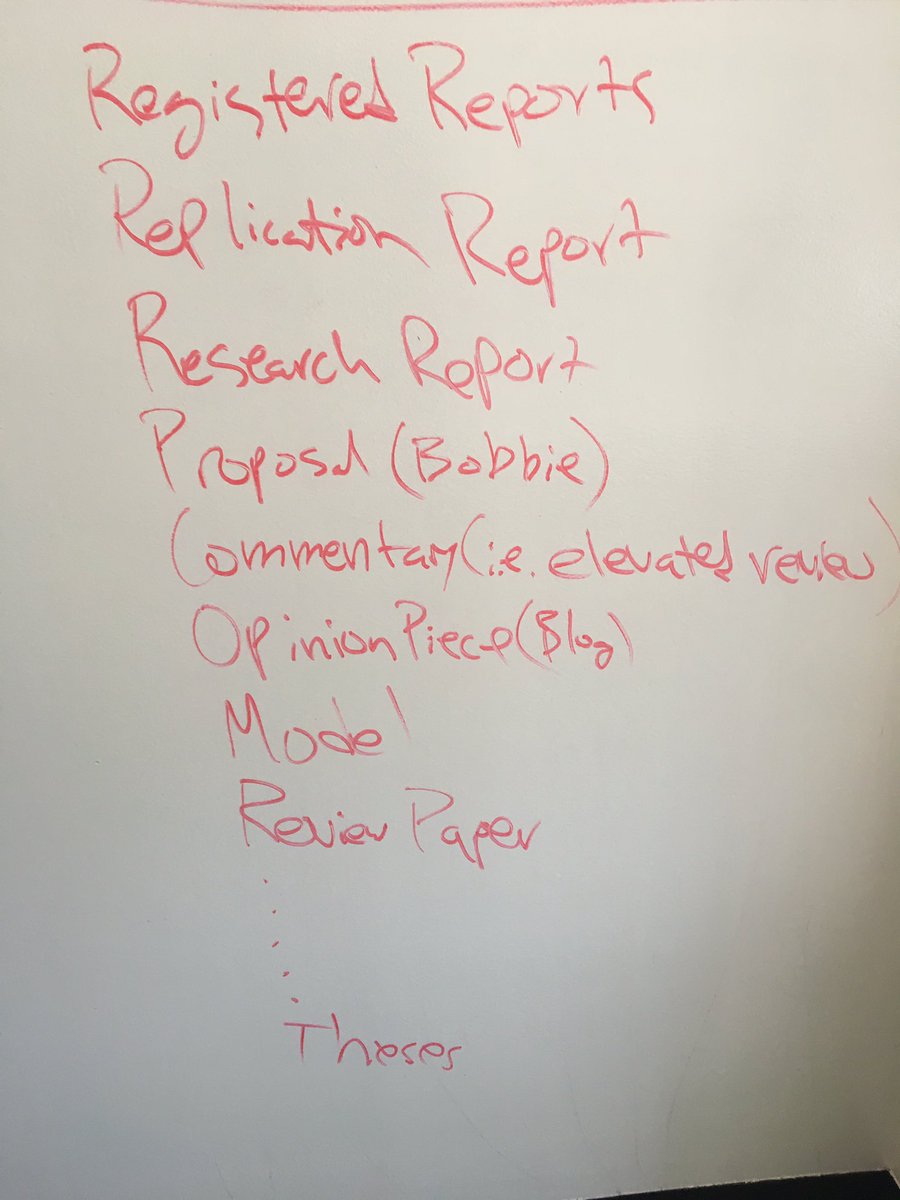 Registered Reports
Replication Report
Research Report
Proposal (Bobbie)
Commentary (i.e. elevated review)
Opinion Piece (Blog)
Model
Review Paper
.
.
.
.
.
Theses